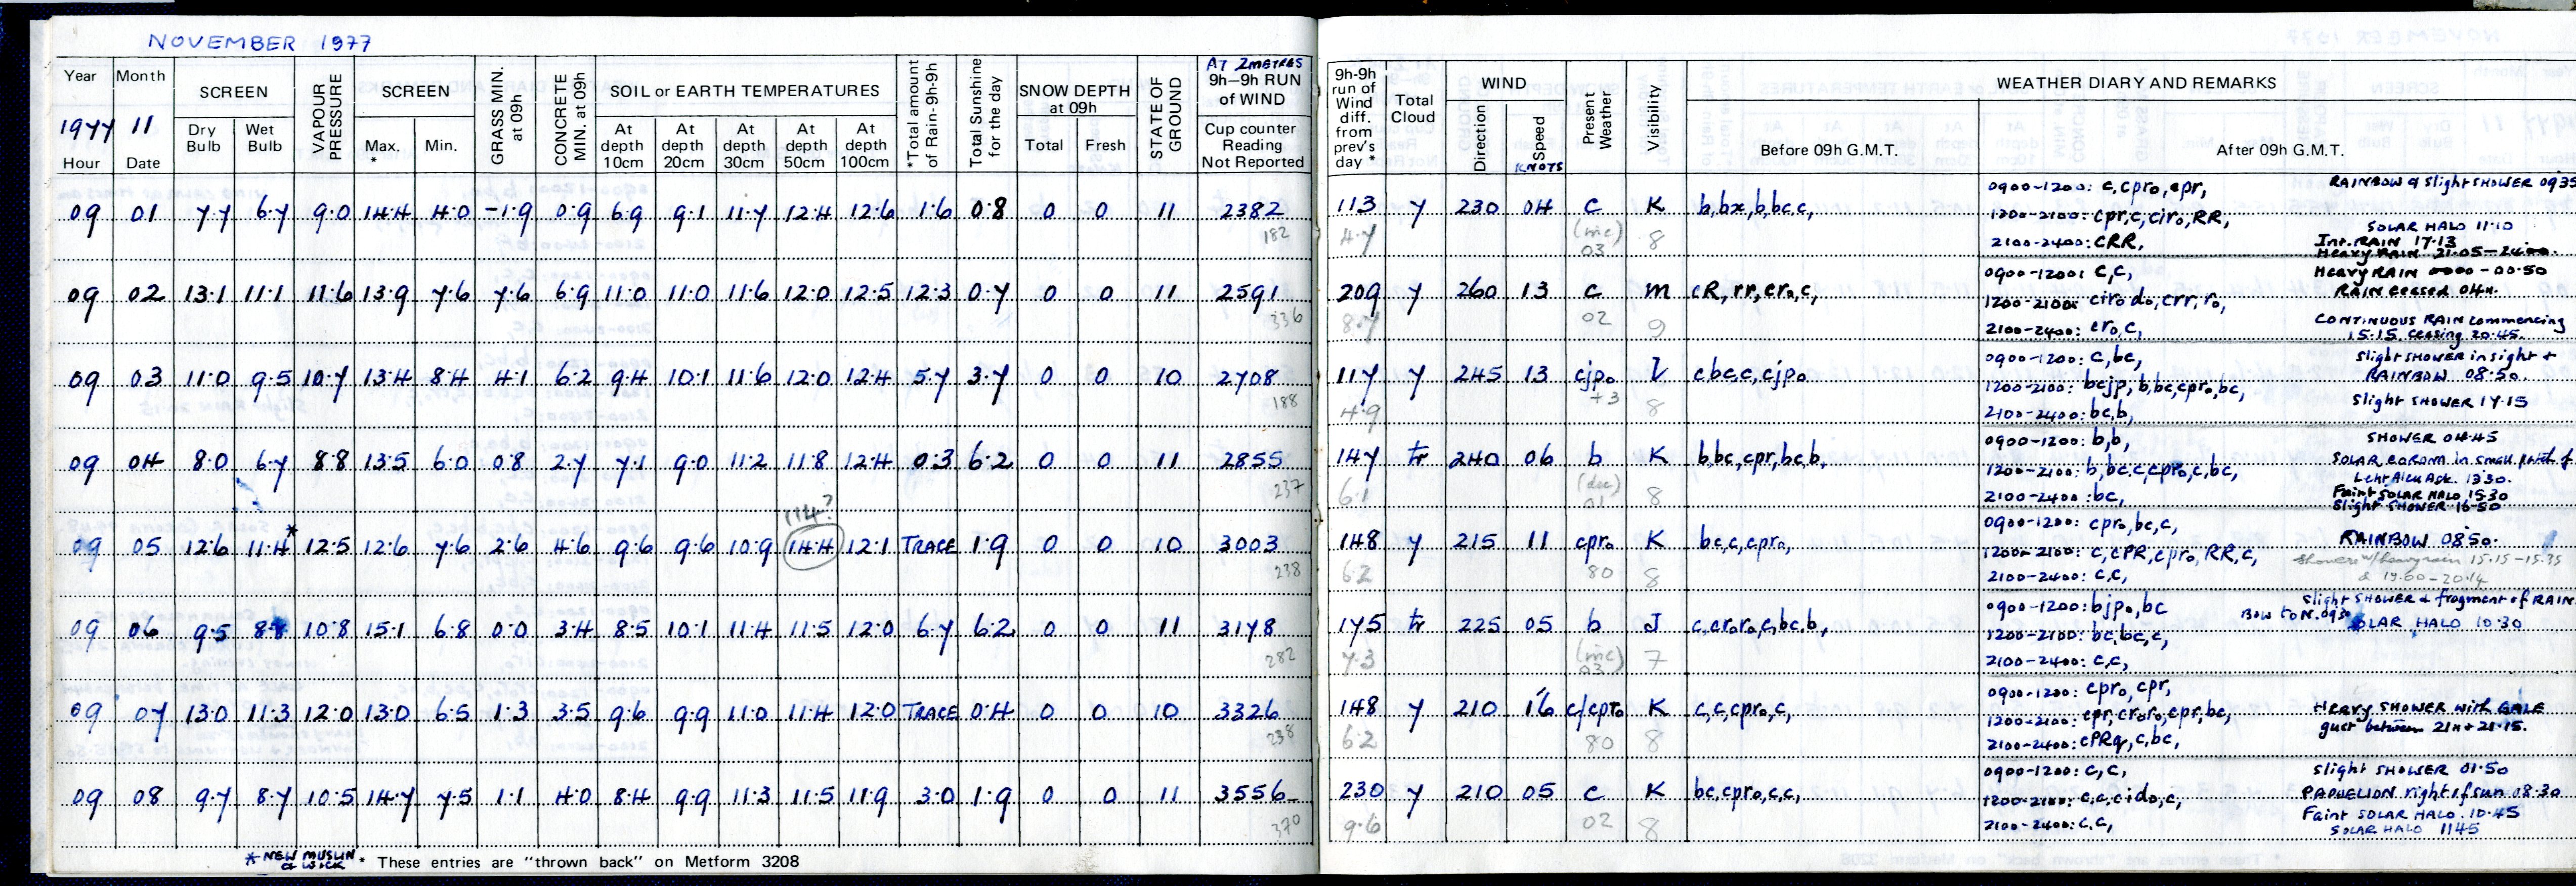 NOVEMBER 1977
Year Month SCREEN VAPOUR PRESSURE SCREEN GRASS MIN. at 09h CONCRETE MIN. at 09h SOIL or EARTH TEMPERATURES *Total amount of Rain-9h-9h Total Sunshine for the day SNOW DEPTH at 09h STATE OF GROUND AT 2 METRES 9h–9h RUN of WIND
1977 11 Dry Bulb Wet Bulb Max. * Min. At depth 10cm At depth 20cm At depth 30cm At depth 50cm At depth 100cm Total Fresh Cup counter Reading Not Reported
Hour Date
09 01 7.7 6.7 9.0 14.4 4.0 -1.9 0.9 6.9 9.1 11.7 12.4 12.6 1.6 0.8 0 0 11 2382
182
09 02 13.1 11.1 11.6 13.9 7.6 7.6 6.9 11.0 11.0 11.6 12.0 12.5 12.3 0.7 0 0 11 2591
336
09 03 11.0 9.5 10.7 13.4 8.4 4.1 6.2 9.4 10.1 11.6 12.0 12.4 5.7 3.7 0 0 10 2708
188
09 04 8.0 6.7 8.8 13.5 6.0 0.8 2.7 7.1 9.0 11.2 11.8 12.4 0.3 6.2 0 0 11 2855
237
11.4?
09 05 12.6 11.4* 12.5 12.6 7.6 2.6 4.6 9.6 9.6 10.9 14.4 12.1 TRACE 1.9 0 0 10 3003
238
09 06 9.5 8.8 10.8 15.1 6.8 0.0 3.4 8.5 10.1 11.4 11.5 12.0 6.7 6.2 0 0 11 3178
282
09 07 13.0 11.3 12.0 13.0 6.5 1.3 3.5 9.6 9.9 11.0 11.4 12.0 TRACE 0.4 0 0 10 3326
238
09 08 9.7 8.7 10.5 14.7 7.5 1.1 4.0 8.4 9.9 11.3 11.5 11.9 3.0 1.9 0 0 11 3556
370
* NEW MUSLIN & WICK
* These entries are "thrown back" on Metform 3208
9h-9h run of Wind diff. from prev's day * Total Cloud WIND Present Weather Visibility WEATHER DIARY AND REMARKS
Direction Speed KNOTS Before 09h G.M.T. After 09h G.M.T.
113 7 230 04 c K b,bx,b,bc,c,
4.7 (inc) 03 8
0900-1200: c,cpro,cpr,
RAINBOW & Slight SHOWER 0935
1200-2100: cpr,c,ciro,RR,
SOLAR HALO 11.10
2100-2400: CRR,
Int. RAIN 17.13
Heavy RAIN 21.05–24.00.
209 7 260 13 c m cR,rr,cro,c,
8.7 02 9
0900-1200: c,c,
Heavy RAIN 0000-00.50
RAIN ceased 04H.
1200-2100: ciro do,crr,ro,
2100-2400: cro,c,
CONTINUOUS RAIN commencing
15.15. Ceasing 20.45.
117 7 245 13 cjpo c,bc,c,cjpo
4.9 +3 8
0900-1200: c,bc,
Slight SHOWER in sight +
RAINBOW 08.50.
1200-2100: bcjp,b,bc,cpro,bc,
Slight SHOWER 17.15
2100-2400: bc,b,
147 tr 240 06 b K b,bc,cpr,bc,b,
6.1 (dec) 01 8
0900-1200: b,b,
SHOWER 04.45
1200-2100: b,bc,c,cpro,c,bc,
SOLAR CORONA in small patch of
1330.
2100-2400: bc,
Faint SOLAR HALO 15.30
Slight SHOWER 16-50
148 7 215 11 cpro K bc,c,cpro,
6.2 80 8
0900-1200: cpro,bc,c,
RAINBOW 08.50.
1200-2100: c,cPR,cpro,RR,c,
Showers w/heavy rain 15.15-15.35
2100-2400: c,c,
& 19.60-20.14
175 tr 225 05 b J c,cro,ro,c,bc,b,
7.3 (inc) 03 7
0900-1200: bjpo,bc
Slight SHOWER & fragment of RAIN
BOW to N.
SOLAR HALO 10.30
1200-2100: bc,bc,c,
2100-2400: c,c,
148 7 210 16 c/cpro K c,c,cpro,c,
6.2 80 8
0900-1200: cpro,cpr,
1200-2100: cpr,croro,cpr,bc,
HEAVY SHOWER with GALE
gust between 21H & 21.15.
2100-2400: cPRq,c,bc,
230 7 210 05 c K bc,cpro,c,c,
9.6 02 8
0900-1200: c,c,
Slight SHOWER 01.50
1200-2100: c,c,c,ido,c,
PARHELION right of sun 08.30
2100-2400: c,c,
Faint SOLAR HALO. 10.45
SOLAR HALO 1145